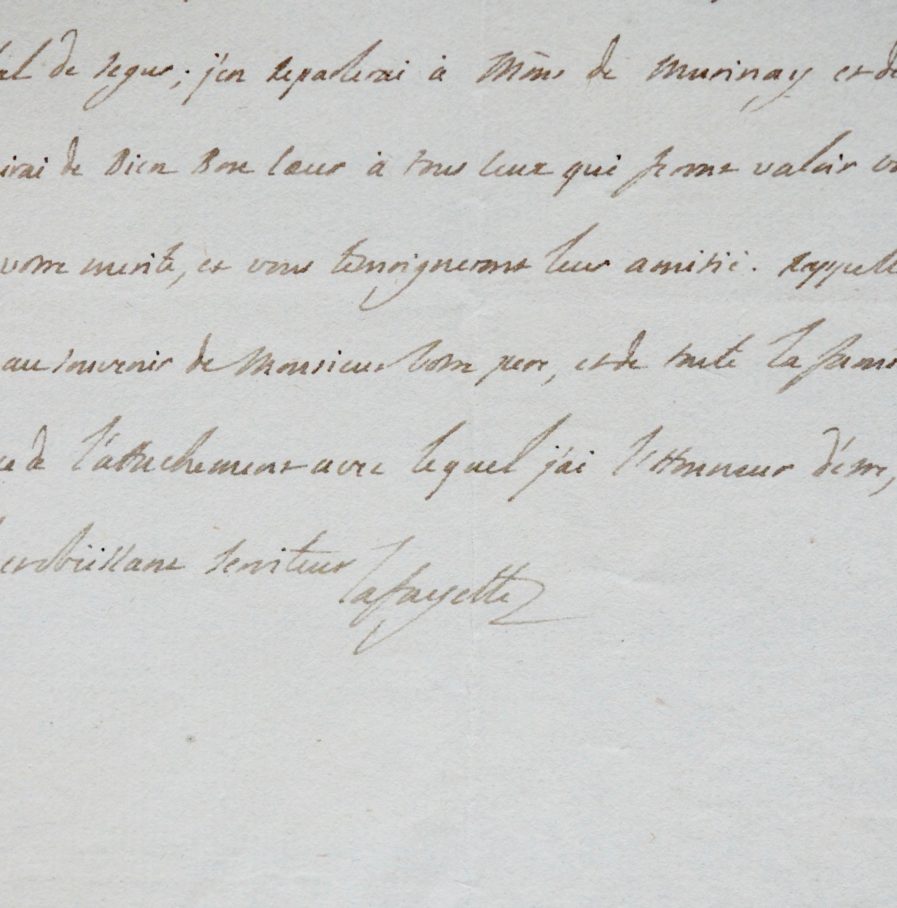 al de segur, j'en reparlerai à Mme de Murinay et de
irai de Bien Bon Coeur à tous ceux qui feront valoir
votre merite, et vous temoigneront leur amitié. rappelle
au souvenir de Monsieur votre pere, et de toute la fami
de l'attachement avec lequel j'ai l'Honneur d'être,
obéissant serviteur
lafayette